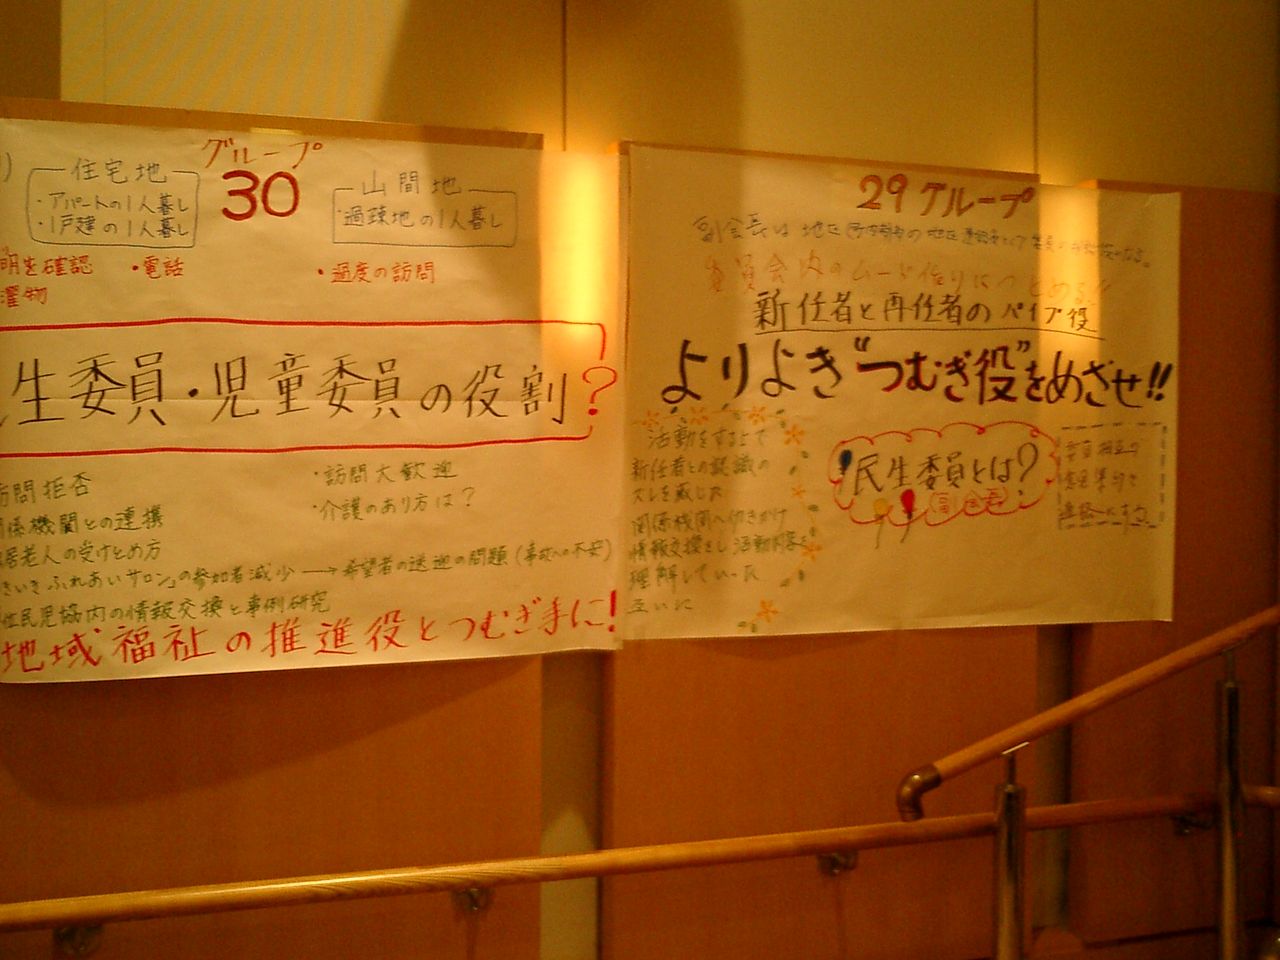 グループ
30
住宅地
・アパートの1人暮し
・1戸建の1人暮し
山間地
・過疎地の1人暮し
明を確認 ・電話
・過度の訪問
濯物
生委員・児童委員の役割?
訪問拒否
・訪問大歓迎
係機関との連携
・介護のあり方は?
居老人の受けとめ方
きいきふれあいサロン」の参加者減少→希望者の送迎の問題(事故への不安)
住民児協内の情報交換と事例研究
地域福祉の推進役とつむぎ手に!
29グループ
副会長は地区
委員会内のムード作りにつとめる!!
新任者と再任者のパイプ役
よりよき"つむぎ役"をめざせ!!
活動をする上で
新任者との認識の
ズレを感じた
関係機関へ働きかけ
情報交換をし活動内容を
理解していった
互いに
民生委員とは?
副会長
委員相互の